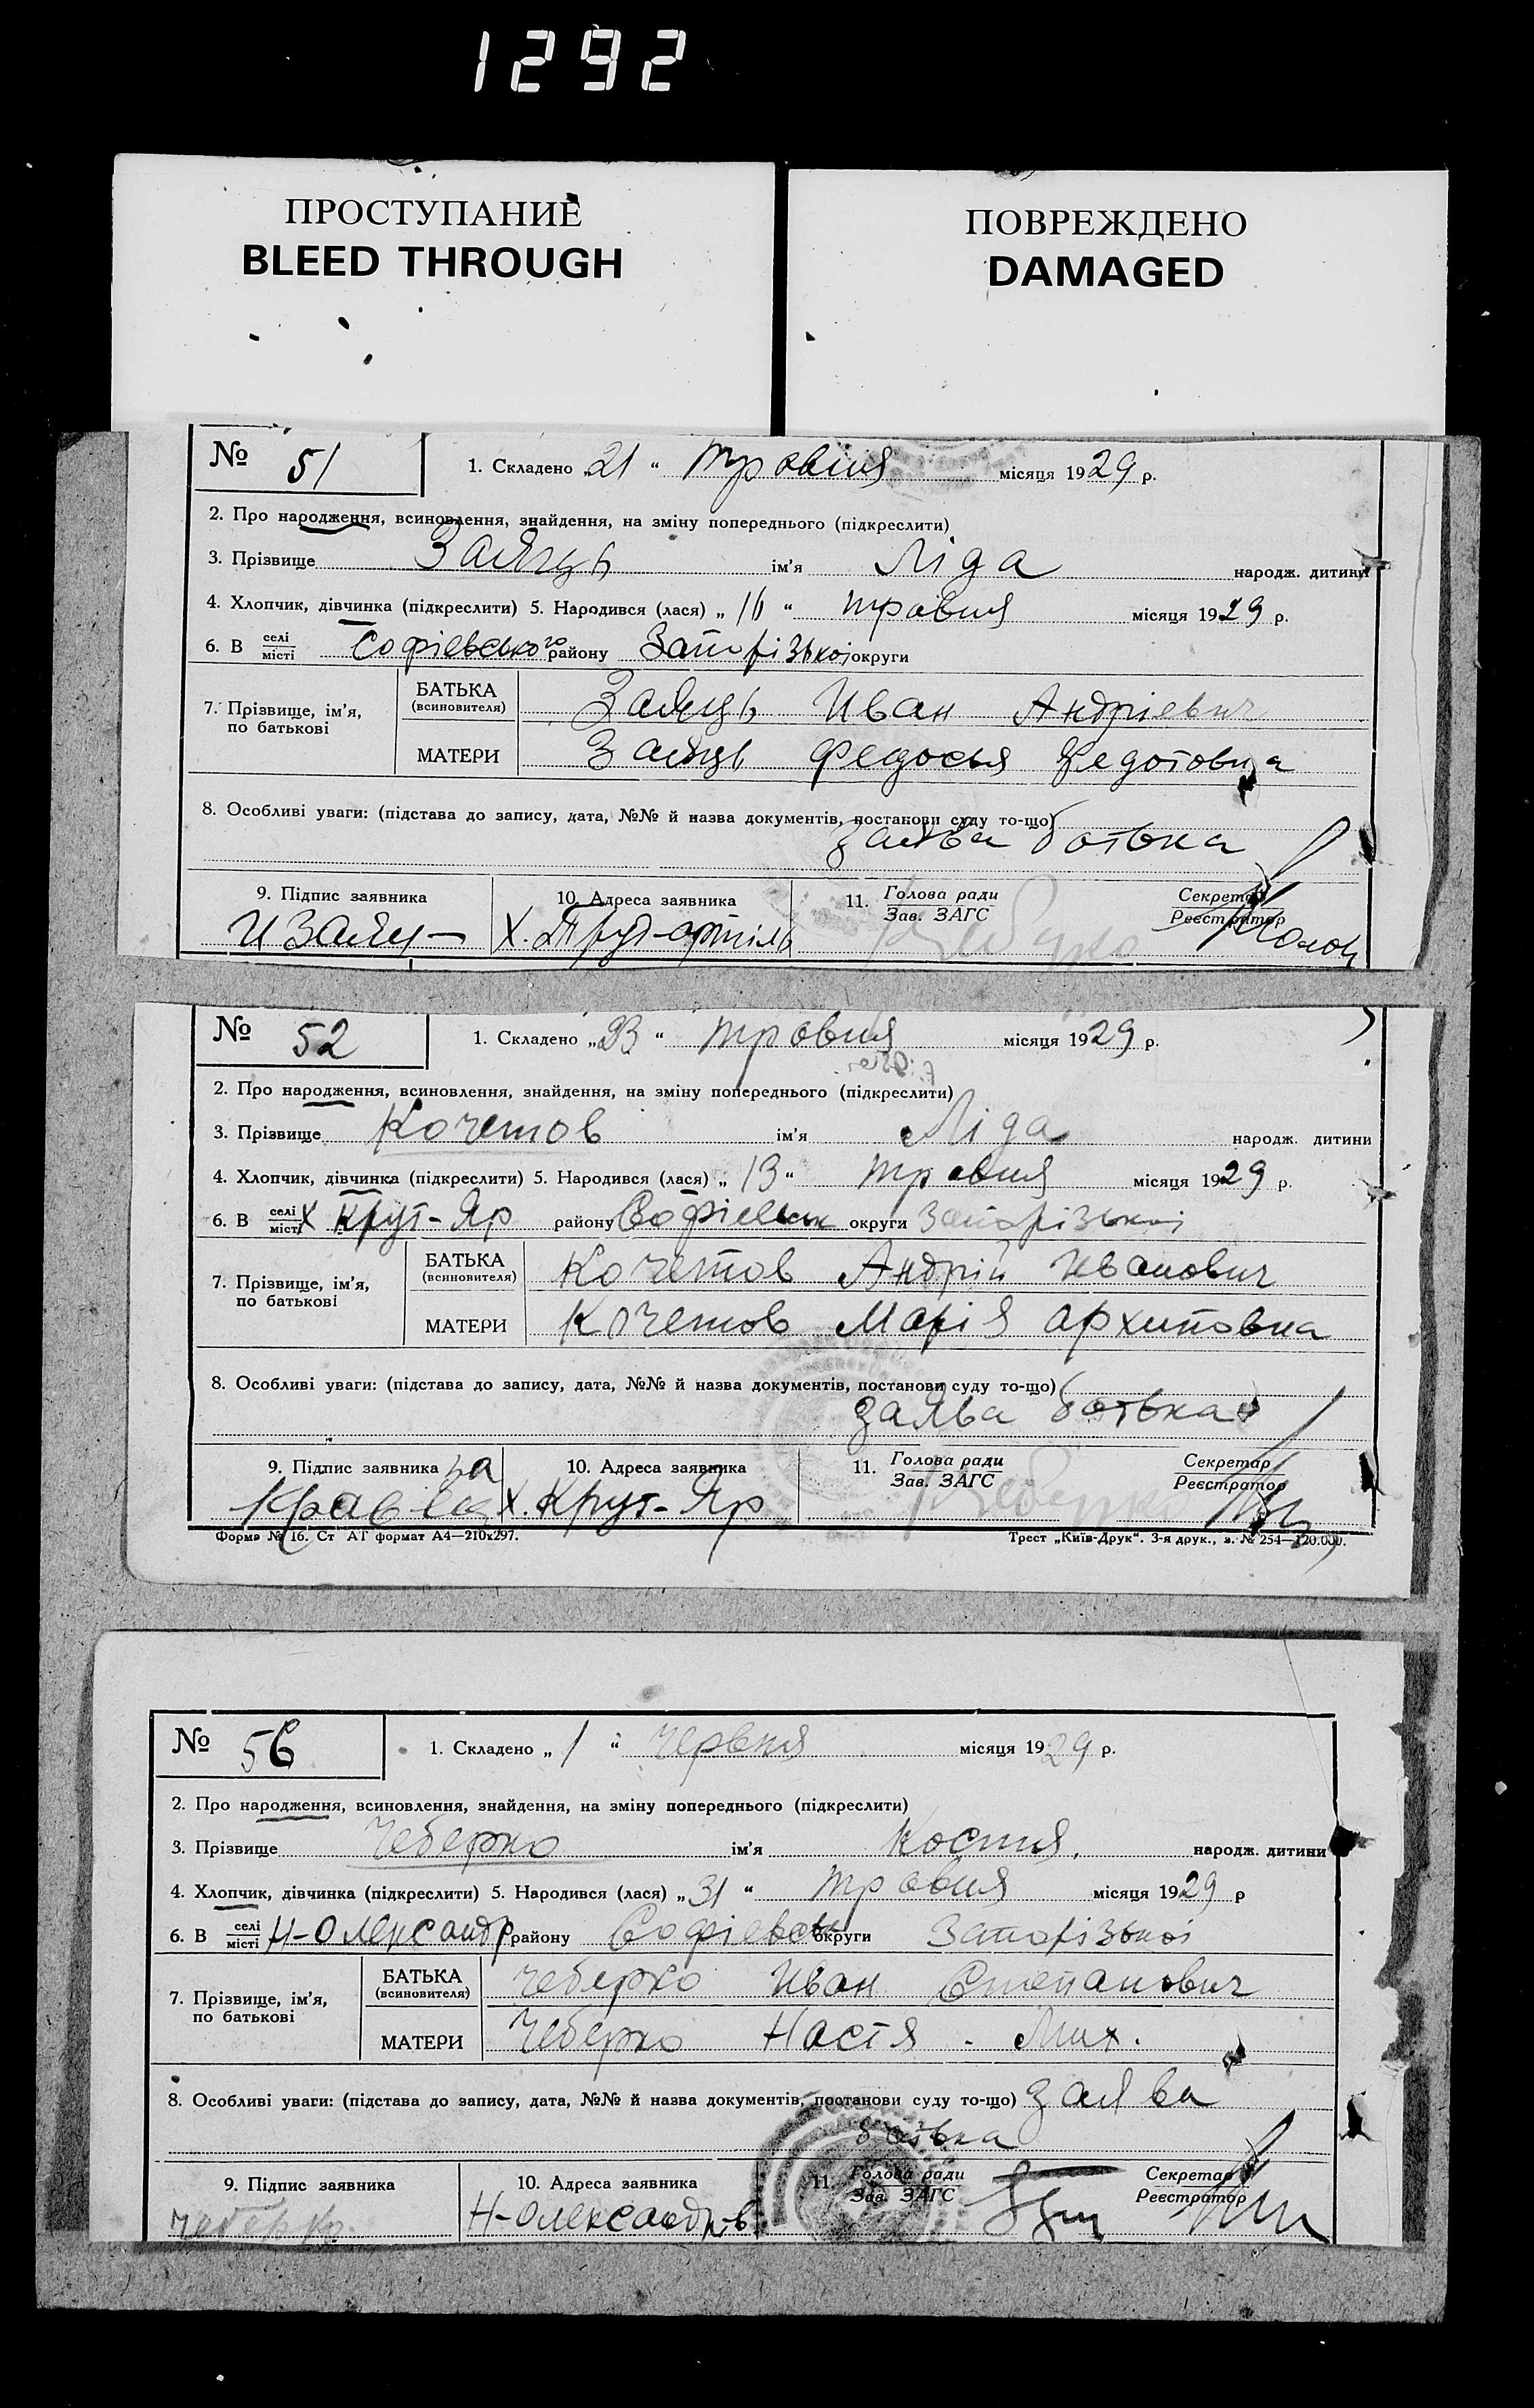 1292
ПРОСТУПАНИЕ
BLEED THROUGH
ПОВРЕЖДЕНО
DAMAGED
№ 51
1. Складено 21 “ травня місяця 1929 р.
2. Про народження, всиновлення, знайдення, на зміну попереднього (підкреслити)
3. Прізвище Заяць ім’я Ліда народж. дитини
4. Хлопчик, дівчинка (підкреслити) 5. Народився (лася) „ 16 “ травня місяця 1929 р.
6. В селі місті Софієвського району Запорізької округи
7. Прізвище, ім’я, по батькові
БАТЬКА (всиновителя) Заяць Иван Андрієвич
МАТЕРИ Заяць Федосья Федотовна
8. Особливі уваги: (підстава до запису, дата, №№ й назва документів, постанови суду то-що)
заява батька
9. Підпис заявника
И Заяц
10. Адреса заявника
Х. Труд-артіль
11. Голова ради Зав. ЗАГС
Секретар Реєстратор
№ 52
1. Складено „ 23 “ травня місяця 1929 р.
2. Про народження, всиновлення, знайдення, на зміну попереднього (підкреслити)
3. Прізвище Кочетов ім’я Ліда народж. дитини
4. Хлопчик, дівчинка (підкреслити) 5. Народився (лася) „ 13 “ травня місяця 1929 р.
6. В селі місті Х Крут-Яр району Софієвськ округи Запорізької
7. Прізвище, ім’я, по батькові
БАТЬКА (всиновителя) Кочетов Андрій Иванович
МАТЕРИ Кочетов Марія Архиповна
8. Особливі уваги: (підстава до запису, дата, №№ й назва документів, постанови суду то-що)
заява батька
9. Підпис заявника
10. Адреса заявника
х. Крут-Яр
11. Голова ради Зав. ЗАГС
Секретар Реєстратор
Форма № 16. Ст АТ формат А4—210х297.
Трест „Київ-Друк“. 3-я друк., з. № 254—120.000.
№ 56
1. Складено „ 1 “ червня місяця 1929 р.
2. Про народження, всиновлення, знайдення, на зміну попереднього (підкреслити)
3. Прізвище Чеберко ім’я Костя. народж. дитини
4. Хлопчик, дівчинка (підкреслити) 5. Народився (лася) „ 31 “ травня місяця 1929 р
6. В селі місті Н-Олександр району Софієвськ округи Запорізької
7. Прізвище, ім’я, по батькові
БАТЬКА (всиновителя) Чеберко Иван Степанович
МАТЕРИ Чеберко Настя - Мих.
8. Особливі уваги: (підстава до запису, дата, №№ й назва документів, постанови суду то-що) заява
батька
9. Підпис заявника
Чеберко.
10. Адреса заявника
Н-Олександр-в
11. Голова ради Зав. ЗАГС
Секретар Реєстратор